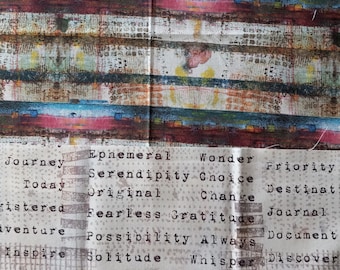 Journey Ephemeral Wonder Priority
Today Serendipity Choice Destinat
gistered Original Change Journal
venture Fearless Gratitude Document
Inspire Possibility Always Discover
Solitude Whisper